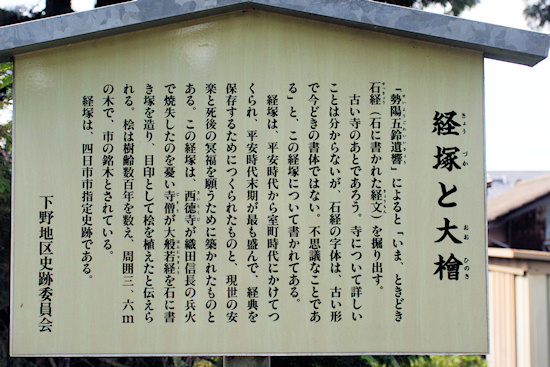 経塚と大檜
きょうづか
おおひのき
「勢陽五鈴遺響」によると「いま、ときどき
石経（石に書かれた経文）を掘り出す。
古い寺のあとであろう。寺について詳しい
ことは分からないが、石経の字体は、古い形
で今どきの書体ではない。不思議なことであ
る」と、この経塚について書かれてある。
経塚は、平安時代から室町時代にかけてつ
くられ、平安時代末期が最も盛んで、経典を
保存するためにつくられたものと、現世の安
楽と死後の冥福を願うために築かれたものと
ある。この経塚は、西徳寺が織田信長の兵火
で焼失したのを憂い寺僧が大般若経を石に書
き塚を造り、目印として桧を植えたと伝えら
れる。桧は樹齢数百年を数え、周囲三．六ｍ
の木で、市の銘木とされている。
経塚は、四日市市指定史跡である。
下野地区史跡委員会